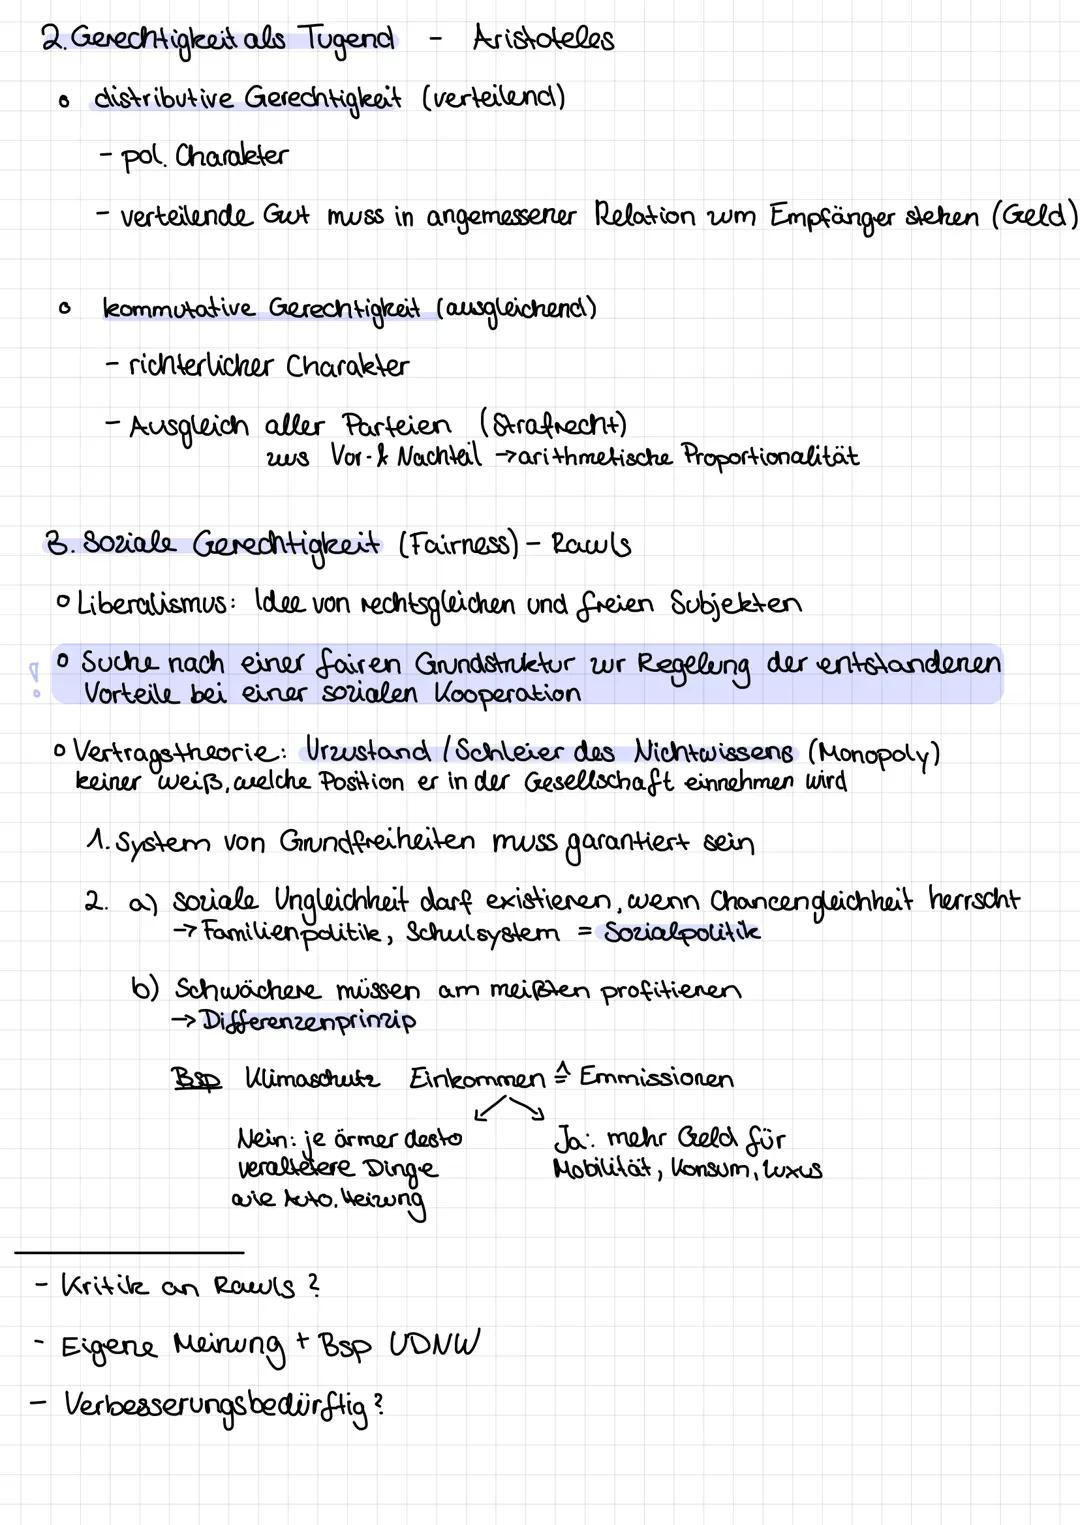 2. Gerechtigkeit als Tugend - Aristoteles
◦ distributive Gerechtigkeit (verteilend)
- pol. Charakter
- verteilende Gut muss in angemessener Relation zum Empfänger stehen (Geld)
◦ kommutative Gerechtigkeit (ausgleichend)
- richterlicher Charakter
- Ausgleich aller Parteien (Strafrecht)
zws Vor- & Nachteil → arithmetische Proportionalität
3. Soziale Gerechtigkeit (Fairness) - Rawls
◦ Liberalismus: Idee von rechtsgleichen und freien Subjekten
! ◦ Suche nach einer fairen Grundstruktur zur Regelung der entstandenen
Vorteile bei einer sozialen Kooperation
◦ Vertragstheorie: Urzustand / Schleier des Nichtwissens (Monopoly)
keiner weiß, welche Position er in der Gesellschaft einnehmen wird
1. System von Grundfreiheiten muss garantiert sein
2. a) soziale Ungleichheit darf existieren, wenn Chancengleichheit herrscht
→ Familienpolitik, Schulsystem = Sozialpolitik
b) Schwächere müssen am meißten profitieren
→ Differenzenprinzip
Bsp Klimaschutz Einkommen ≙ Emmissionen
Nein: je ärmer desto
veraltetere Dinge
wie Auto, Heizung
Ja: mehr Geld für
Mobilität, Konsum, Luxus
- Kritik an Rawls?
- Eigene Meinung + Bsp UDNW
- Verbesserungsbedürftig?